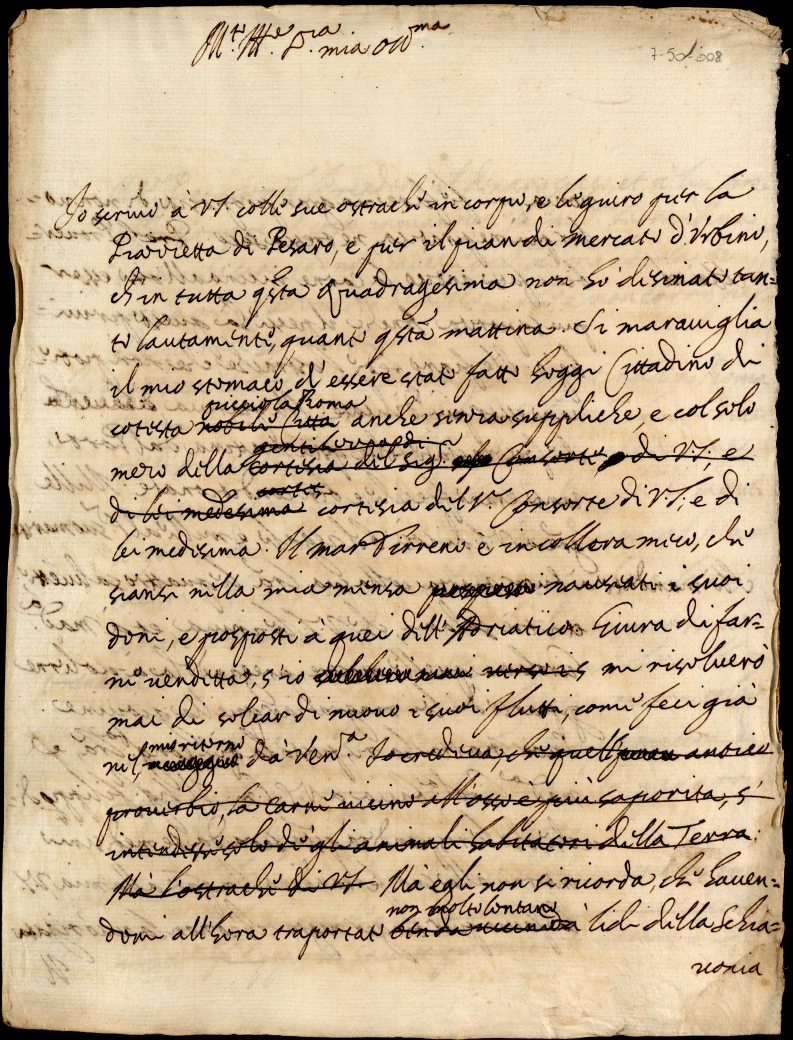 M.to Ill.e S.ra mia oss.ma
7-50-008
Io scrivo à V.S. colle sue ostrache in corpo, e le giuro per la
Piazzetta di Pesaro, e per il pian di mercato d'Urbino,
ch'in tutta q.sta Quadragesima non hò disinato tan=
to lautamente, quanto q.sta mattina. Si maraviglia
il mio stomaco d'essere stato fatto hoggi Cittadino di
picciola Roma
cotesta nobile Città anche senza suppliche, e col solo
gentilhuomo di
mero della cortesia del Sig. Consorte di V.S., e
di lei medesima cortesia del S.r Consorte di V.S., e di
lei medesima. Il mar Tirreno è in collora meco, che
siansi nella mia mensa nauseati i suoi
doni, e posposti a quei dell'Adriatico. Giura di far=
ne vendetta, s'io mi risolverò
mai di solcar di nuovo i suoi flutti, come feci già
mio ritorno
nel da Ven.a Io credeva, che quell' antico
proverbio, la carne vicino all'osso è più saporita, s'
intendesse solo de gli animali habitatori della Terra.
Mà l'ostrache di V.S. Mà egli non si ricorda, che haven=
non molto lontano
domi all'hora traportato à lidi della Schia=
vonia